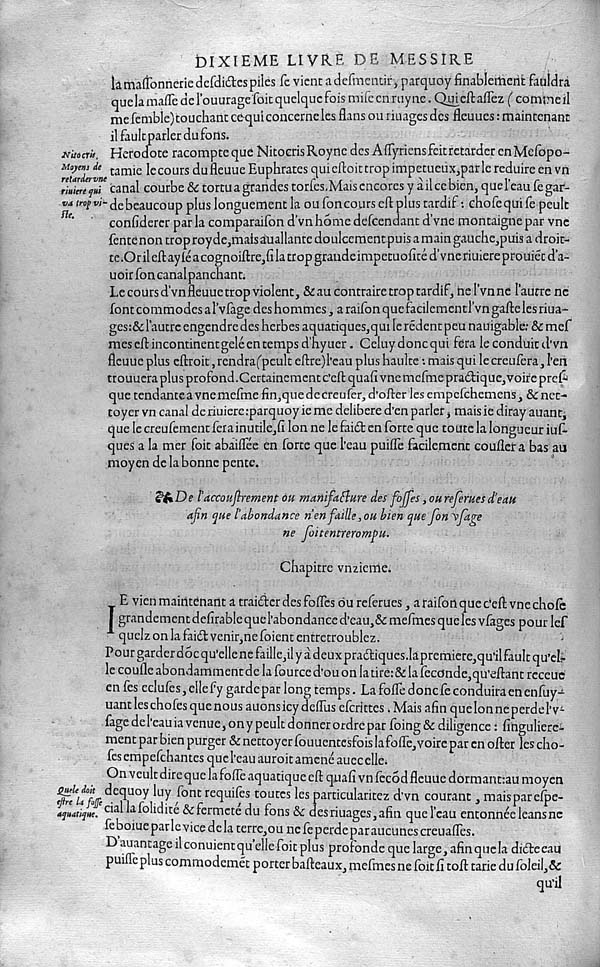 DIXIEME LIVRE DE MESSIRE
la maſſonnerie deſdictes piles ſe vient a deſmentir, parquoy finablement fauldra
que la maſſe de l'ouurage ſoit quelque fois miſe en ruyne. Qui eſt aſſez (comme il
me ſemble) touchant ce qui concerne les flans ou riuages des fleuues: maintenant
il fault parler du fons.
Nitocris.
Moyens de
retarder vne
riuiere qui
va trop vi-
ſte.
Herodote racompte que Nitocris Royne des Aſſyriens feit retarder en Meſopo-
tamie le cours du fleuue Euphrates qui eſtoit trop impetueux, par le reduire en vn
canal courbe & tortu a grandes torſes. Mais encores y à il ce bien, que l'eau ſe gar-
de beaucoup plus longuement la ou ſon cours eſt plus tardif: choſe qui ſe peult
conſiderer par la comparaiſon d'vn hōme deſcendant d'vne montaigne par vne
ſente non trop royde, mais auallante doulcement puis a main gauche, puis a droit-
te. Or il eſt ayſé a cognoiſtre, ſi la trop grande impetuoſité d'vne riuiere prouiēt d'a-
uoir ſon canal panchant.
Le cours d'vn fleuue trop violent, & au contraire trop tardif, ne l'vn ne l'autre ne
ſont commodes a l'vſage des hommes, a raiſon que facilement l'vn gaſte les riua-
ges: & l'autre engendre des herbes aquatiques, qui le rēdent peu nauigable: & meſ
mes eſt incontinent gelé en temps d'hyuer. Celuy donc qui fera le conduit d'vn
fleuue plus eſtroit, rendra (peult eſtre) l'eau plus haulte: mais qui le creuſera, l'en
trouuera plus profond. Certainement c'eſt quaſi vne meſme practique, voire preſ-
que tendante a vne meſme fin, que de creuſer, d'oſter les empeſchemens, & net-
toyer vn canal de riuiere: parquoy ie me delibere d'en parler, mais ie diray auant,
que le creuſement ſera inutile, ſi lon ne le faict en ſorte que toute la longueur iuſ-
ques a la mer ſoit abaiſſée en ſorte que l'eau puiſſe facilement couſler a bas au
moyen de la bonne pente.
De l'accouſtrement ou manifacture des foſſes, ou reſerues d'eau
afin que l'abondance n'en faille, ou bien que ſon vſage
ne ſoit entrerompu.
Chapitre vnzieme.
IE vien maintenant a traicter des foſſes ou reſerues, a raiſon que c'eſt vne choſe
grandement deſirable que l'abondance d'eau, & meſmes que les vſages pour leſ
quelz on la faict venir, ne ſoient entretroublez.
Pour garder dōc qu'elle ne faille, il y à deux practiques. la premiere, qu'il fault qu'el-
le couſle abondamment de la ſource d'ou on la tire: & la ſeconde, qu'eſtant receue
en ſes ecluſes, elle ſ'y garde par long temps. La foſſe donc ſe conduira en enſuy-
uant les choſes que nous auons icy deſſus eſcrittes. Mais afin que lon ne perde l'v-
ſage de l'eau ia venue, on y peult donner ordre par ſoing & diligence: ſinguliere-
ment par bien purger & nettoyer ſouuentesfois la foſſe, voire par en oſter les cho-
ſes empeſchantes que l'eau auroit amené auec elle.
Quele doit
eſtre la foſſe
aquatique.
On veult dire que la foſſe aquatique eſt quaſi vn ſecōd fleuue dormant: au moyen
dequoy luy ſont requiſes toutes les particularitez d'vn courant, mais par eſpe-
cial la ſolidité & fermeté du fons & des riuages, afin que l'eau entonnée leans ne
ſe boiue par le vice de la terre, ou ne ſe perde par aucunes creuaſſes.
D'auantage il conuient qu'elle ſoit plus profonde que large, afin que la dicte eau
puiſſe plus commodemēt porter baſteaux, meſmes ne ſoit ſi toſt tarie du ſoleil, &
qu'il